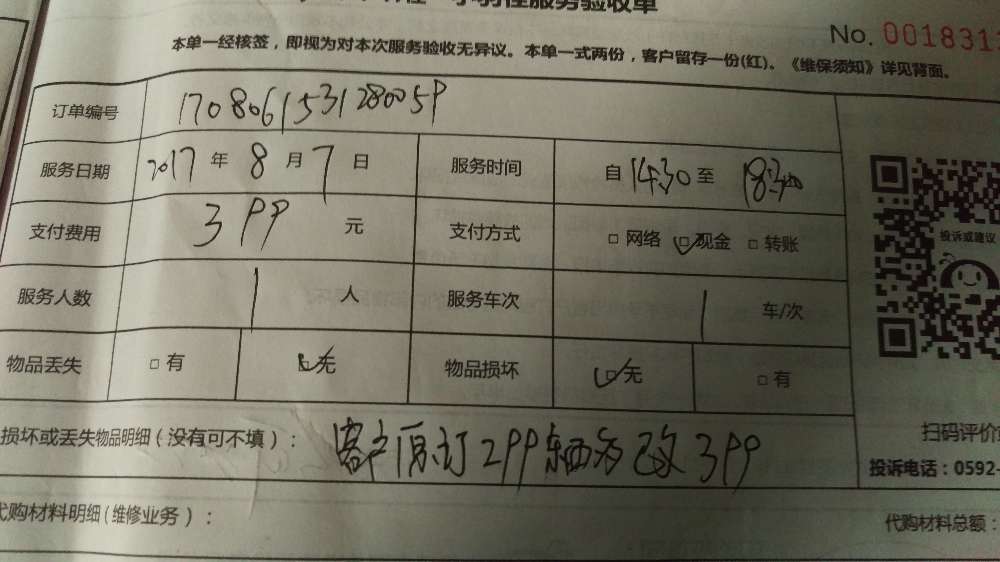 服务验收单
No. 001831
本单一经核签，即视为对本次服务验收无异议。本单一式两份，客户留存一份(红)。《维保须知》详见背面。
订单编号 1708061531280059
服务日期 2017 年 8 月 7 日 服务时间 自 14:30 至 18:30
支付费用 399 元 支付方式 □ 网络 □ 现金 □ 转账
投诉或建议
服务人数 1 人 服务车次 1 车/次
物品丢失 □ 有 □ 无 物品损坏 □ 无 □ 有
损坏或丢失物品明细（没有可不填）： 客户原订299 东西多 改399
扫码评价
投诉电话：0592-
代购材料明细(维修业务）：
代购材料总额：